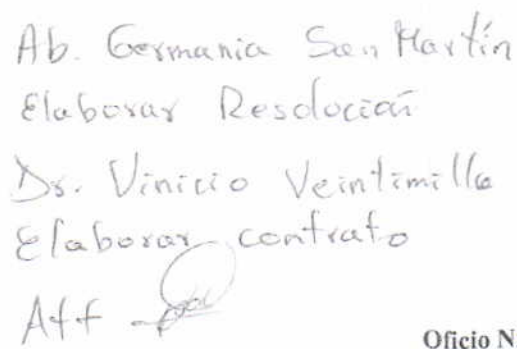 Ab. Germania San Martín
Elaborar Resolución
Dr. Vinicio Veintimilla
Elaborar contrato
Att
Oficio N